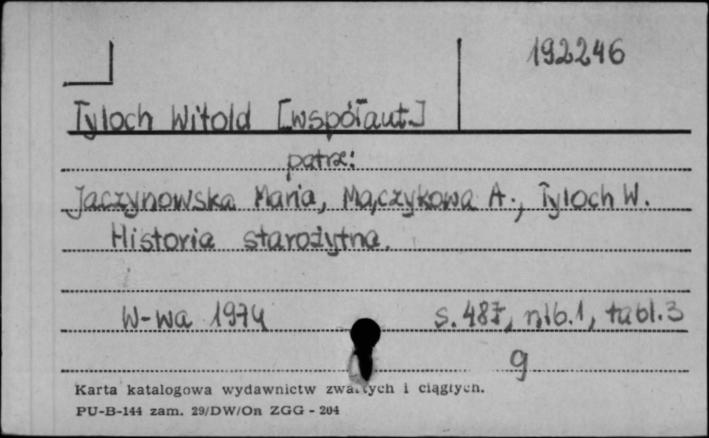 192246
Tyloch Witold [współaut.]
patrz:
Jaczynowska Maria, Mączykowa A., Tyloch W.
Historia starożytna.
W-wa 1974 s. 487, nlb.1, tabl.3
9
Karta katalogowa wydawnictw zwartych i ciągłych.
PU-B-144 zam. 29/DW/On ZGG - 204